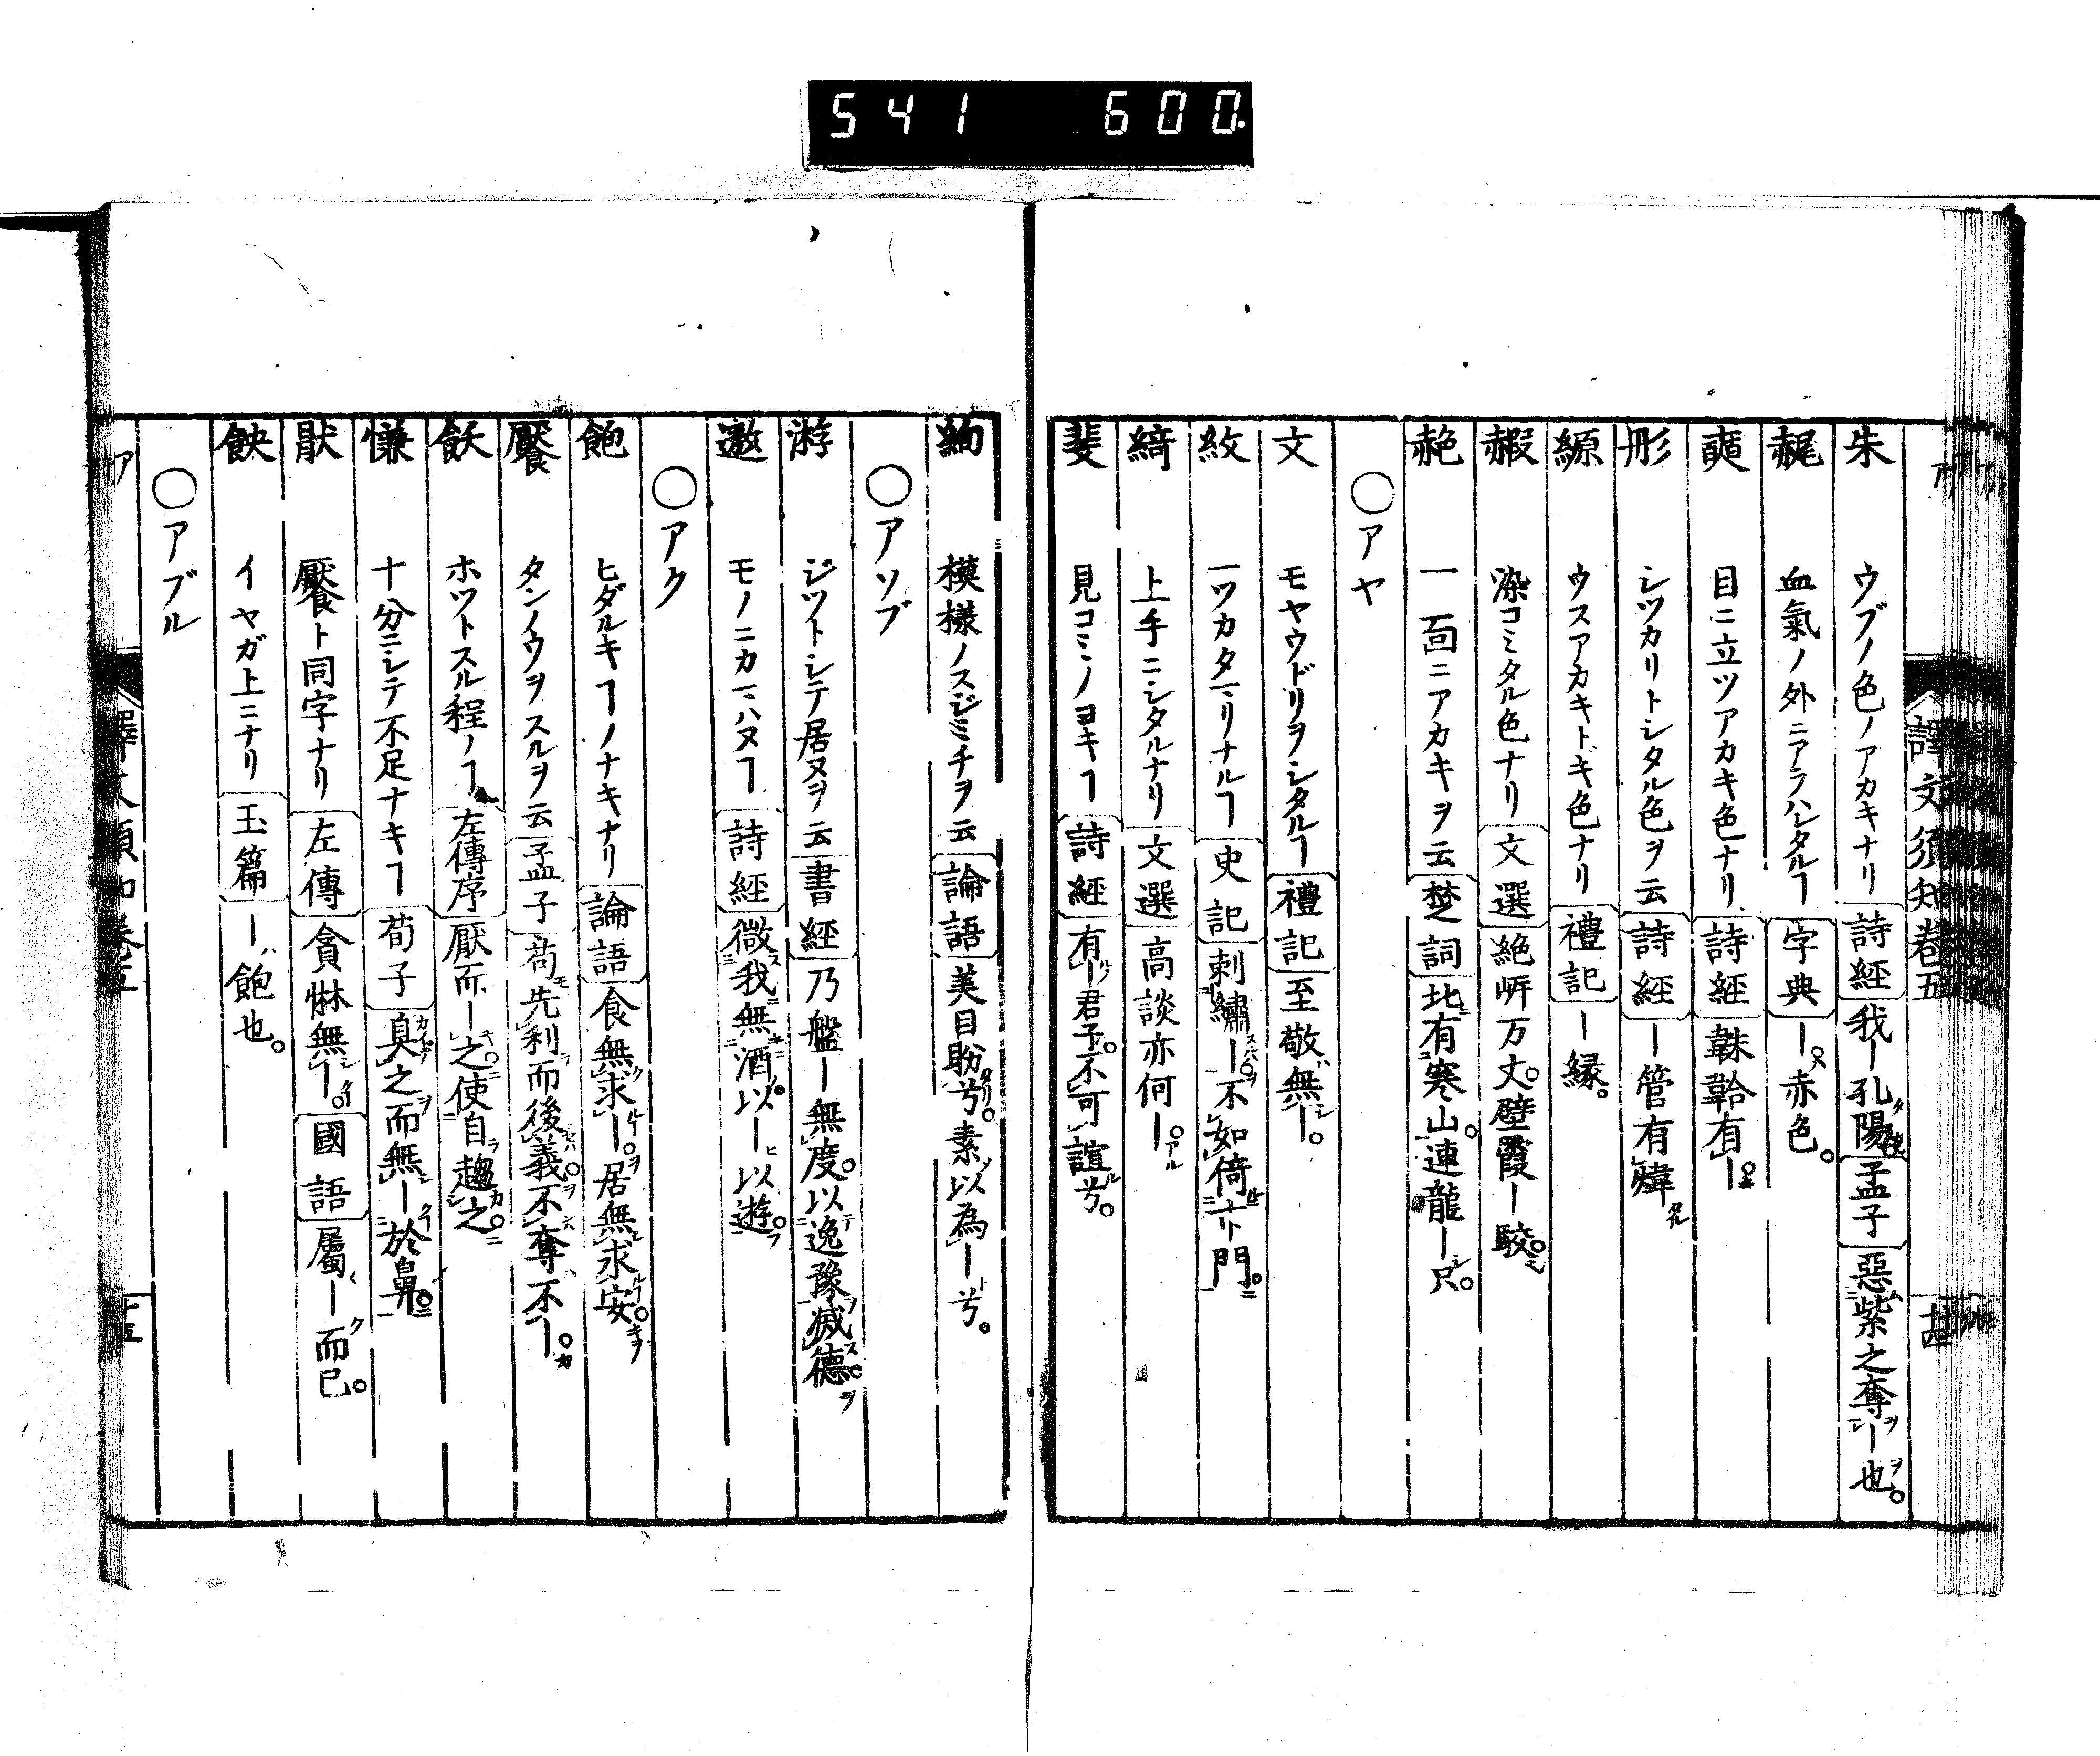 541 600.
譯文須知卷五
十四
朱 ウブノ色ノアカキナリ 詩経 我ー孔陽 孟子 惡紫之奪ー也。
赩 血氣ノ外ニアラハレタルヿ 字典 ー赤色。
奭 目ニ立ツアカキ色ナリ 詩経 韎韐有ー。
彤 シツカリトシタル色ヲ云 詩経 ー管有煒
縓 ウスアカキトギ色ナリ 禮記 ー縁。
赮 染コミタル色ナリ 文選 絶岍万丈。壁霞ー駮。
赩 一面ニアカキヲ云 楚詞 北有寒山。逴龍ー只。
○アヤ
文 モヤウドリヲシタルヿ 禮記 至敬無ー。
紋 一ツカタマリナルヿ 史記 刺繡ー。不如倚市門。
綺 上手ニシタルナリ 文選 高談亦何ー。
斐 見コミノヨキヿ 詩経 有ー君子。不可諠兮。
絢 模様ノスジミチヲ云 論語 美目盼兮。素以為ー兮。
○アソブ
游 ジツトシテ居ヌヲ云 書経 乃盤ー無度。以逸豫滅德。
遨 モノニカマハヌヿ 詩経 微我無酒。以ー以遊。
○アク
飽 ヒダルキヿノナキナリ 論語 食無求ー。居無求安。
饜 タンノウヲスルヲ云 孟子 苟先利而後義。不奪不ー。
飫 ホツトスル程ノヿ 左傳序 厭而ー之。使自趨之。
慊 十分ニシテ不足ナキヿ 荀子 臭之而無ー於鼻。
猒 饜ト同字ナリ 左傳 貪惏無ー。 國語 屬ー而已。
䬬 イヤガ上ニナリ 玉篇 ー飽也。
○アブル
ア
譯文須知卷五
十五